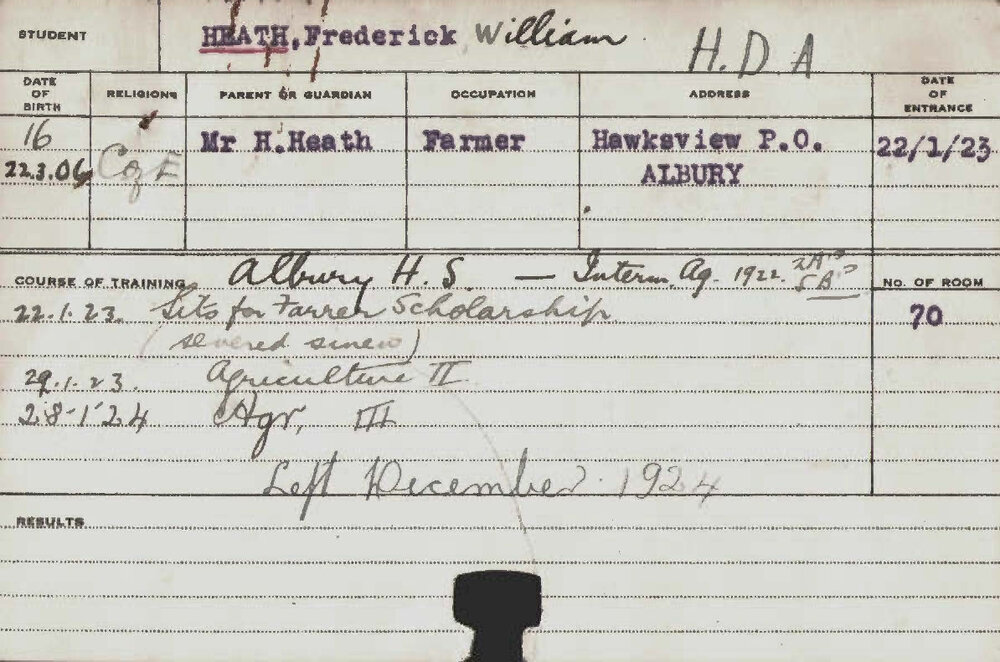 STUDENT HEATH, Frederick William H.D.A
DATE OF BIRTH RELIGION PARENT OR GUARDIAN OCCUPATION ADDRESS DATE OF ENTRANCE
16 Mr H. Heath Farmer Hawksview P.O. 22/1/23
22.3.06 C of E ALBURY
COURSE OF TRAINING Albury H.S. — Interm. Ag. 1922. 2A's 5B's NO. OF ROOM
22.1.23. Sits for Farrer Scholarship 70
(severed sinew)
29.1.23. Agriculture II
28-1-24 Agr, III
Left December 1924
RESULTS